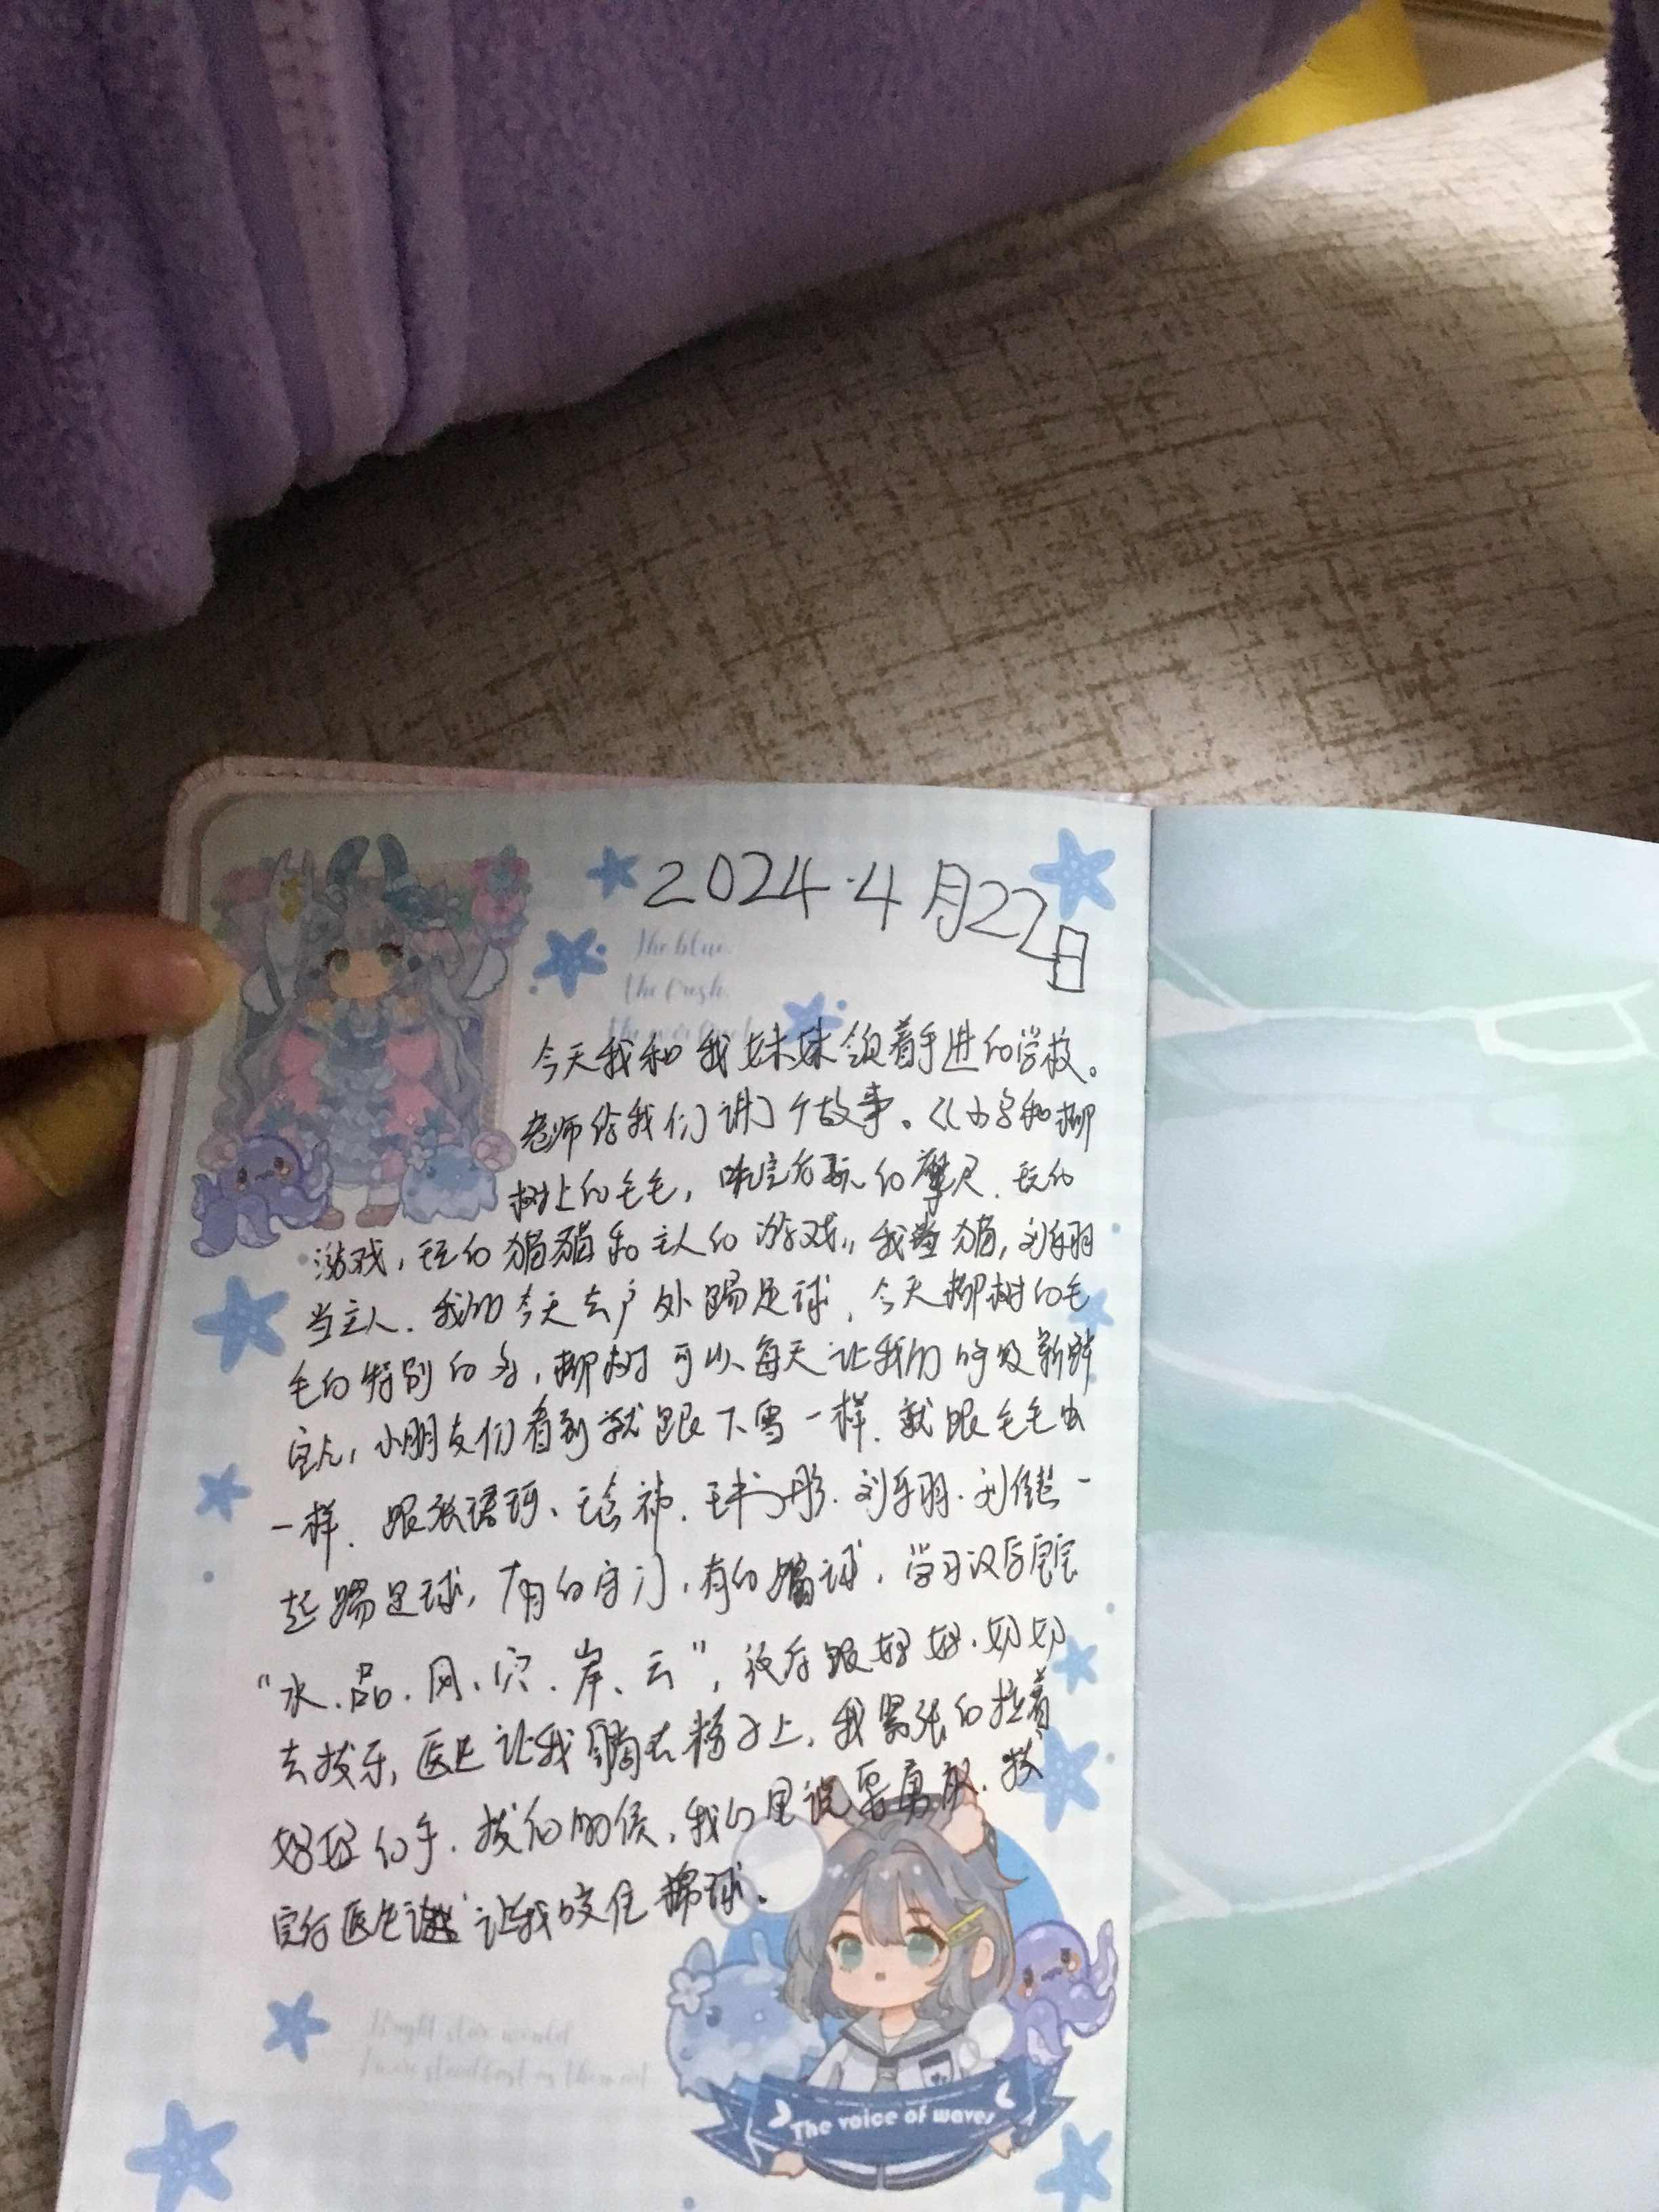 2024.4月22日
The blue.
the fresh.
今天我和我妹妹领着手进的学校。
老师给我们讲了个故事。《小字和柳
树上的毛毛，吃完后玩的摩尺、玩的
游戏，玩的猫猫和主人的游戏。我当猫，刘乐羽
当主人、我们今天去户外踢足球、今天柳树的毛
毛的特别的多，柳树可以每天让我们呼吸新鲜
空气，小朋友们看到就跟下雪一样、就跟毛毛虫
一样、跟张语珂、王书彤、刘乐羽、刘一
起踢足球，有的守门，有的踢球，学习汉后宝宝
"水、品、风、穴、岸、云"，然后跟好好、奶奶
去拔牙，医生让我躺在椅子上，我紧张的拉着
好好的手、拔的时候，我心里说要勇敢、拔
完后医生让我咬住棉球。
Bright star would
I were steadfast as thou art
The voice of waves